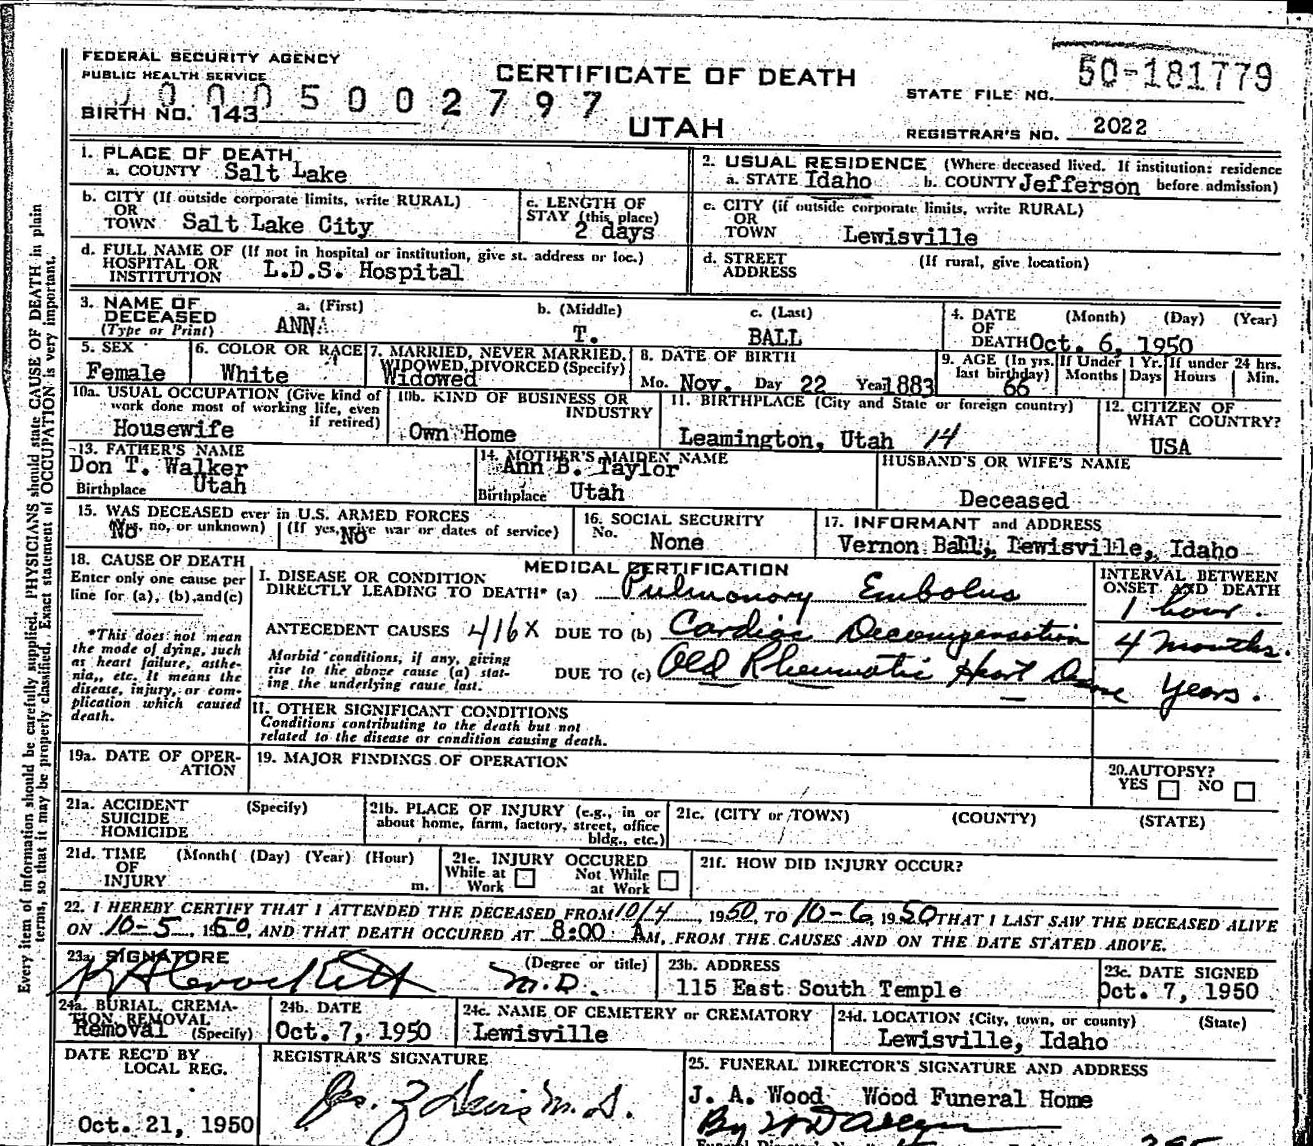 FEDERAL SECURITY AGENCY
PUBLIC HEALTH SERVICE
CERTIFICATE OF DEATH
50-181779
STATE FILE NO.
5002797
BIRTH NO. 143
UTAH
REGISTRAR'S NO. 2022
1. PLACE OF DEATH
a. COUNTY Salt Lake
2. USUAL RESIDENCE (Where deceased lived. If institution: residence
a. STATE Idaho b. COUNTY Jefferson before admission)
b. CITY (If outside corporate limits, write RURAL)
OR
TOWN Salt Lake City
c. LENGTH OF
STAY (this place)
2 days
c. CITY (if outside corporate limits, write RURAL)
OR
TOWN Lewisville
d. FULL NAME OF (If not in hospital or institution, give st. address or loc.)
HOSPITAL OR
INSTITUTION L.D.S. Hospital
d. STREET (If rural, give location)
ADDRESS
3. NAME OF DECEASED
(Type or Print)
a. (First) b. (Middle) c. (Last)
ANNA T. BALL
4. DATE (Month) (Day) (Year)
OF
DEATH Oct. 6, 1950
5. SEX
Female
6. COLOR OR RACE
White
7. MARRIED, NEVER MARRIED,
WIDOWED, DIVORCED (Specify)
Widowed
8. DATE OF BIRTH
Mo. Nov. Day 22 Year 1883
9. AGE (In yrs. last birthday)
66
If Under 1 Yr. If under 24 hrs.
Months Days Hours Min.
10a. USUAL OCCUPATION (Give kind of
work done most of working life, even
if retired)
Housewife
10b. KIND OF BUSINESS OR
INDUSTRY
Own Home
11. BIRTHPLACE (City and State or foreign country)
Leamington, Utah 14
12. CITIZEN OF
WHAT COUNTRY?
USA
13. FATHER'S NAME
Don T. Walker
Birthplace Utah
14. MOTHER'S MAIDEN NAME
Ann B. Taylor
Birthplace Utah
HUSBAND'S OR WIFE'S NAME
Deceased
15. WAS DECEASED ever in U.S. ARMED FORCES
(Yes, no, or unknown) (If yes, give war or dates of service)
No No
16. SOCIAL SECURITY
No.
None
17. INFORMANT and ADDRESS
Vernon Ball, Lewisville, Idaho
18. CAUSE OF DEATH
Enter only one cause per
line for (a), (b), and (c)
*This does not mean
the mode of dying, such
as heart failure, asthe-
nia, etc. It means the
disease, injury, or com-
plication which caused
death.
MEDICAL CERTIFICATION
I. DISEASE OR CONDITION
DIRECTLY LEADING TO DEATH* (a) Pulmonary Embolus
ANTECEDENT CAUSES 416X DUE TO (b) Cardiac Decompensation
Morbid conditions, if any, giving
rise to the above cause (a) stat-
ing the underlying cause last.
DUE TO (c) Old Rheumatic Heart Disease
INTERVAL BETWEEN
ONSET AND DEATH
1 hour.
4 months.
Years.
II. OTHER SIGNIFICANT CONDITIONS
Conditions contributing to the death but not
related to the disease or condition causing death.
19a. DATE OF OPER-
ATION
19. MAJOR FINDINGS OF OPERATION
20. AUTOPSY?
YES NO
21a. ACCIDENT (Specify)
SUICIDE
HOMICIDE
21b. PLACE OF INJURY (e.g., in or
about home, farm, factory, street, office
bldg., etc.)
21c. (CITY or TOWN) (COUNTY) (STATE)
21d. TIME (Month( (Day) (Year) (Hour)
OF
INJURY m.
21e. INJURY OCCURED
While at Work Not While at Work
21f. HOW DID INJURY OCCUR?
22. I HEREBY CERTIFY THAT I ATTENDED THE DECEASED FROM 10/4, 1950, TO 10-6, 1950 THAT I LAST SAW THE DECEASED ALIVE
ON 10-5, 1950, AND THAT DEATH OCCURED AT 8:00 AM, FROM THE CAUSES AND ON THE DATE STATED ABOVE.
23a. SIGNATURE (Degree or title)
M.D.
23b. ADDRESS
115 East South Temple
23c. DATE SIGNED
Oct. 7, 1950
24a. BURIAL, CREMA-
TION, REMOVAL
Removal (Specify)
24b. DATE
Oct. 7, 1950
24c. NAME OF CEMETERY or CREMATORY
Lewisville
24d. LOCATION (City, town, or county) (State)
Lewisville, Idaho
DATE REC'D BY
LOCAL REG.
Oct. 21, 1950
REGISTRAR'S SIGNATURE
25. FUNERAL DIRECTOR'S SIGNATURE AND ADDRESS
J. A. Wood Wood Funeral Home
By
Every item of information should be carefully supplied. PHYSICIANS should state CAUSE OF DEATH in plain
terms, so that it may be properly classified. Exact statement of OCCUPATION is very important.